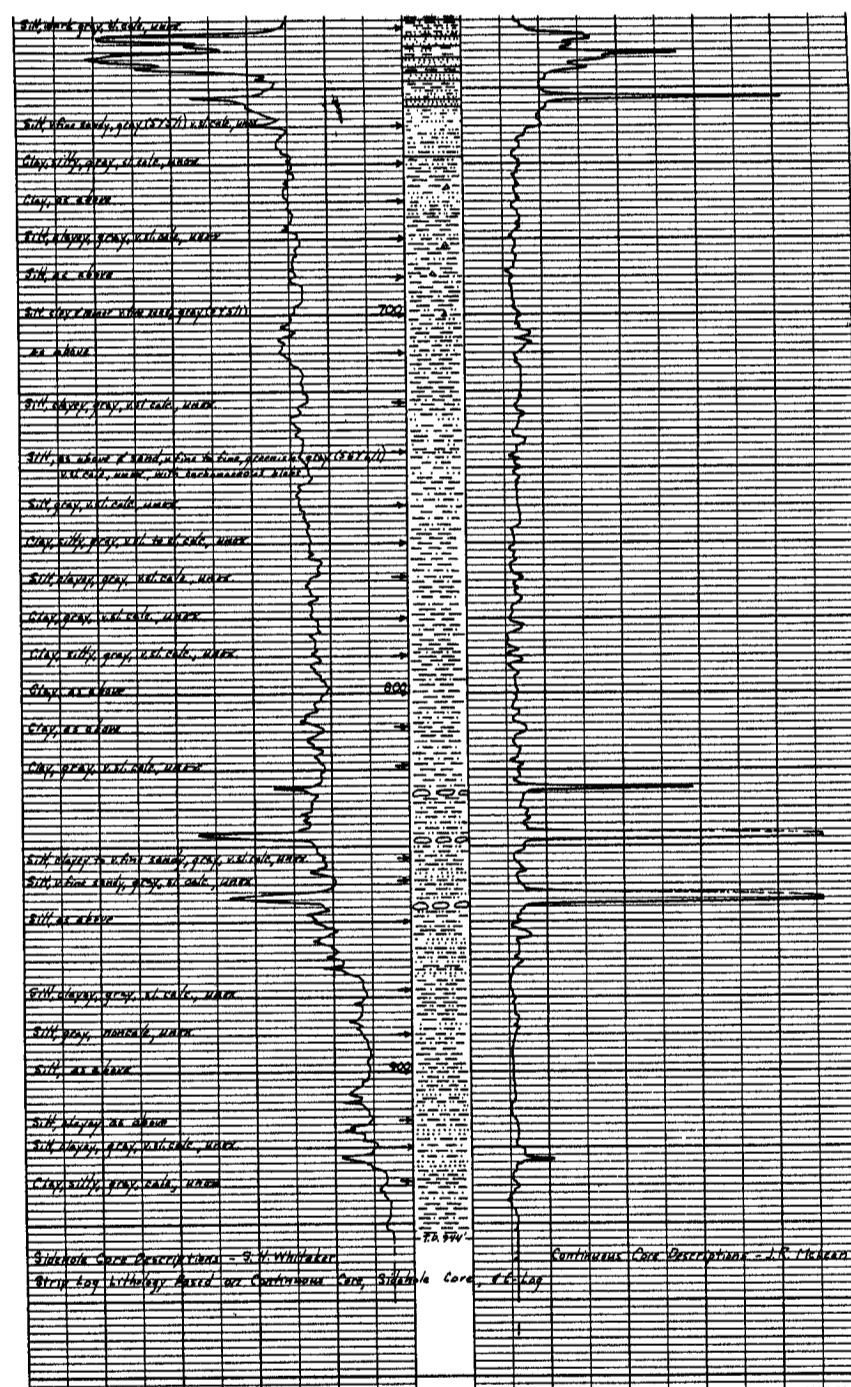 Silt, dark gray, sl. calc., unox.
Silt, v. fine sandy, gray (5Y5/1) v. sl. calc., unox.
Clay, silty, gray, sl. calc., unox.
Clay, as above
Silt, clayey, gray, v. sl. calc., unox
Silt, as above
700
Silt, clay & minor v. fine sand, gray (5Y5/1)
as above
Silt, clayey, gray, v. sl. calc., unox.
Silt, as above & sand, v. fine to fine, greenish gray
v. sl. calc., unox., with carbonaceous blebs
Silt, gray, v. sl. calc., unox.
Clay, silty, gray, v. sl. to sl. calc., unox
Silt, clayey, gray, v. sl. calc., unox.
Clay, gray, v. sl. calc., unox
Clay, silty, gray, v. sl. calc., unox
Clay, as above
800
Clay, as above
Clay, gray, v. sl. calc., unox
Silt, clayey to v. fine sandy, gray, v. sl. calc., unox.
Silt, v. fine sandy, gray, sl. calc., unox
Silt, as above
Silt, clayey, gray, sl. calc., unox
Silt, gray, noncalc., unox
Silt, as above
900
Silt, clayey as above
Silt, clayey, gray, v. sl. calc., unox
Clay, silty, gray, calc., unox
T.D. 944'
Sidehole Core Descriptions - S. H. Whitaker
Continuous Core Descriptions - J. R. McLean
Strip Log Lithology Based on Continuous Core, Sidehole Core, & E-Log